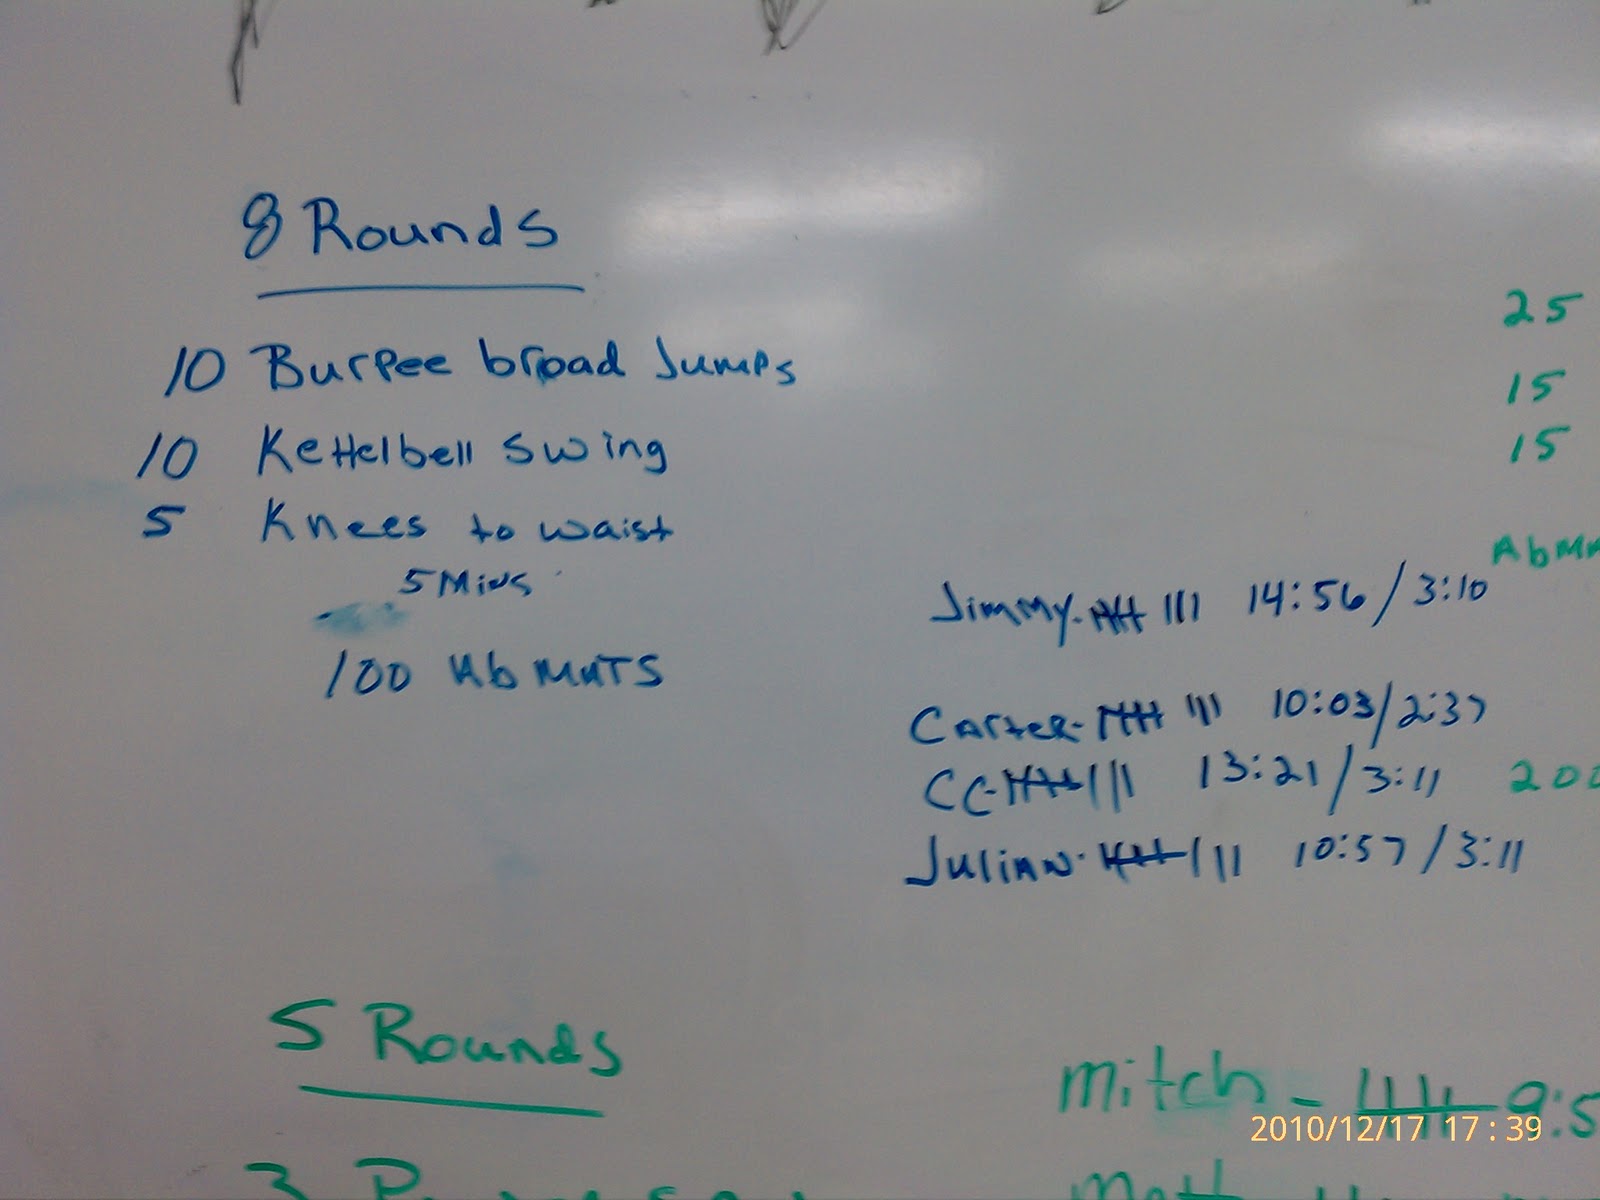 8 Rounds
10 Burpee broad Jumps
10 Kettelbell swing
5 Knees to waist
5 Mins
100 Ab MATS
25
15
15
AbMA
Jimmy- 14:56 / 3:10
Carter- 10:03 / 2:37
CC- 13:21 / 3:11
200
Julian- 10:57 / 3:11
5 Rounds
mitch - 9:5
3
matt
2010/12/17 17:39